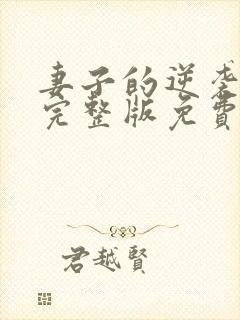 妻子的逆袭
完整版免費
君越賢